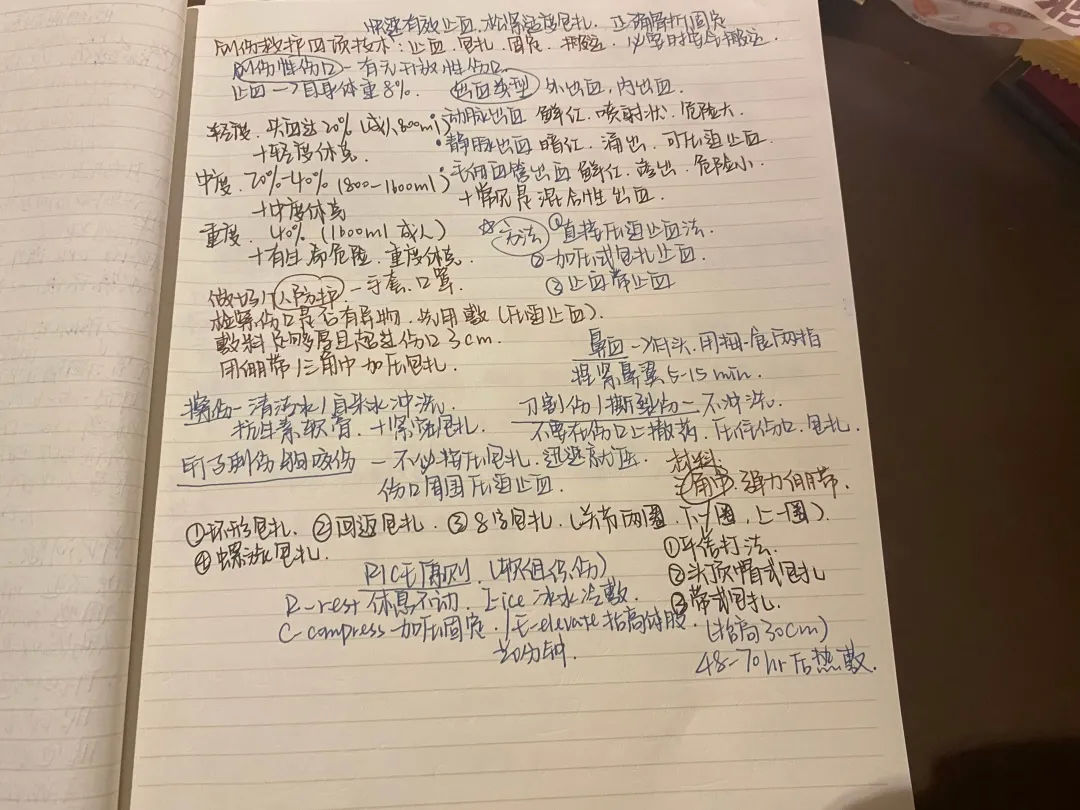 迅速有效止血、松紧适度包扎、正确骨折固定
创伤救护四项技术:止血、包扎、固定、搬运、必要时安全搬运.
创伤性伤口-有无开放性伤口.
止血→自身体重8%.
轻度.失血达20%(成人800ml)
+轻度休克.
中度.20%-40%(800-1600ml)
+中度休克
重度.40%(1600ml成人)
+有生命危险、重度休克.
出血类型 外出血,内出血.
·动脉出血 鲜红、喷射状、危险大
·静脉出血 暗红、涌出、可压迫止血.
·毛细血管出血 鲜红、渗出、危险小.
+常见是混合性出血.
☆方法 ①直接压迫止血法.
②加压式包扎止血.
③止血带止血
做好个人防护-手套、口罩.
检察伤口是否有异物.先用敷(压迫止血).
敷料足够多厚且超过伤口3cm.
用绷带/三角巾加压包扎.
鼻血→低头、用拇、食两指
捏紧鼻翼5-15min.
擦伤-清洁水/自来水冲洗.
抗生素软膏.+紧密包扎.
刀割伤/撕裂伤-不冲洗.
不要在伤口上撒药.压住伤口、包扎.
钉子刺伤 咬伤-不必按压包扎.迅速就医.
伤口周围压迫止血.
材料
三角巾.强力绷带.
①环形包扎.②回返包扎.③8字包扎.(关节两圈.下一圈,上一圈).
④螺旋包扎.
①耳结打法.
②头顶帽式包扎
③带式包扎.
RICE原则.(软组织伤)
R-rest休息不动. I-ice冰水冷敷.
C-compress-加压固定. /E-elevate抬高肢股.
(抬高30cm)
20分钟.
48-70hr后热敷.